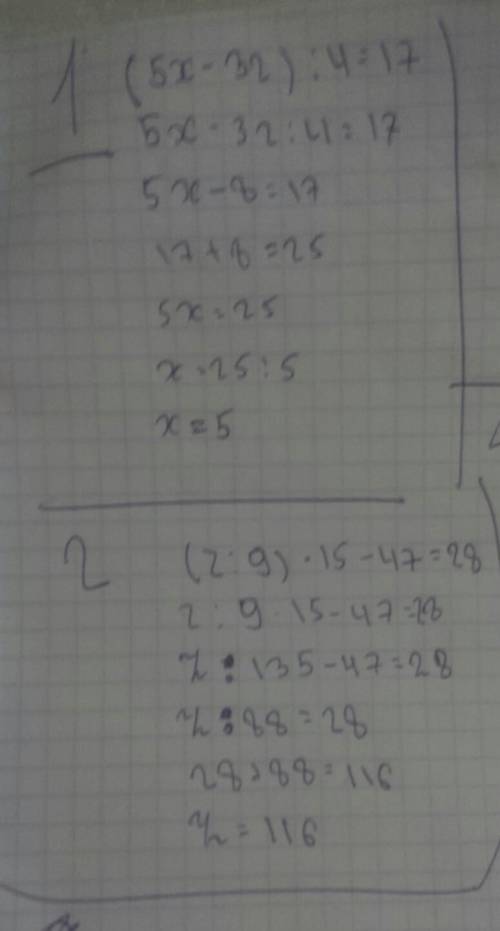 1 (5x - 32) : 4 = 17
5x - 32 : 4 = 17
5x - 8 = 17
17 + 8 = 25
5x = 25
x = 25 : 5
x = 5
2 (z : 9) · 15 - 47 = 28
z : 9 · 15 - 47 = 28
z : 135 - 47 = 28
z : 88 = 28
28 + 88 = 116
z = 116